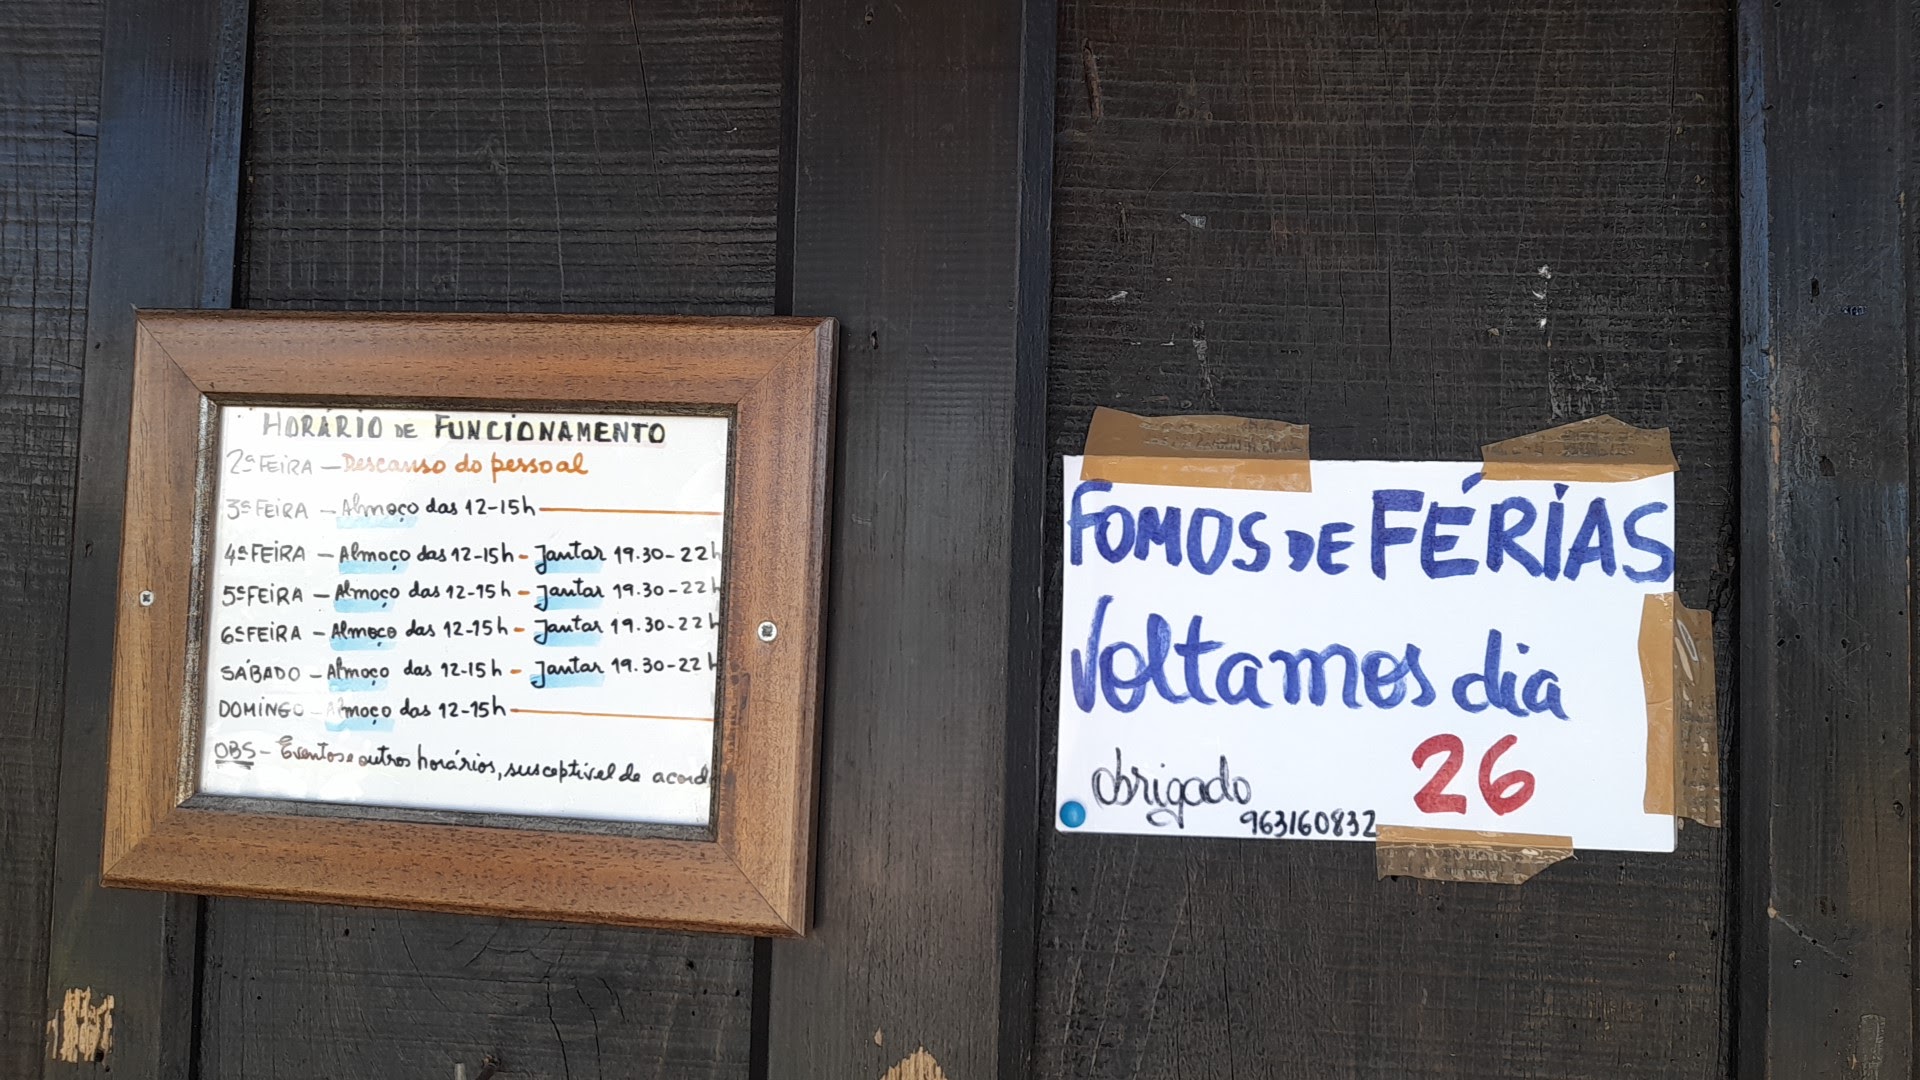 HORÁRIO DE FUNCIONAMENTO
2ª FEIRA - Descanso do pessoal
3ª FEIRA - Almoço das 12-15h
4ª FEIRA - Almoço das 12-15h - Jantar 19.30-22h
5ª FEIRA - Almoço das 12-15h - Jantar 19.30-22h
6ª FEIRA - Almoço das 12-15h - Jantar 19.30-22h
SÁBADO - Almoço das 12-15h - Jantar 19.30-22h
DOMINGO - Almoço das 12-15h
OBS - Eventos e outros horários, susceptível de acord
FOMOS DE FÉRIAS
Voltamos dia
26
obrigado
963160832